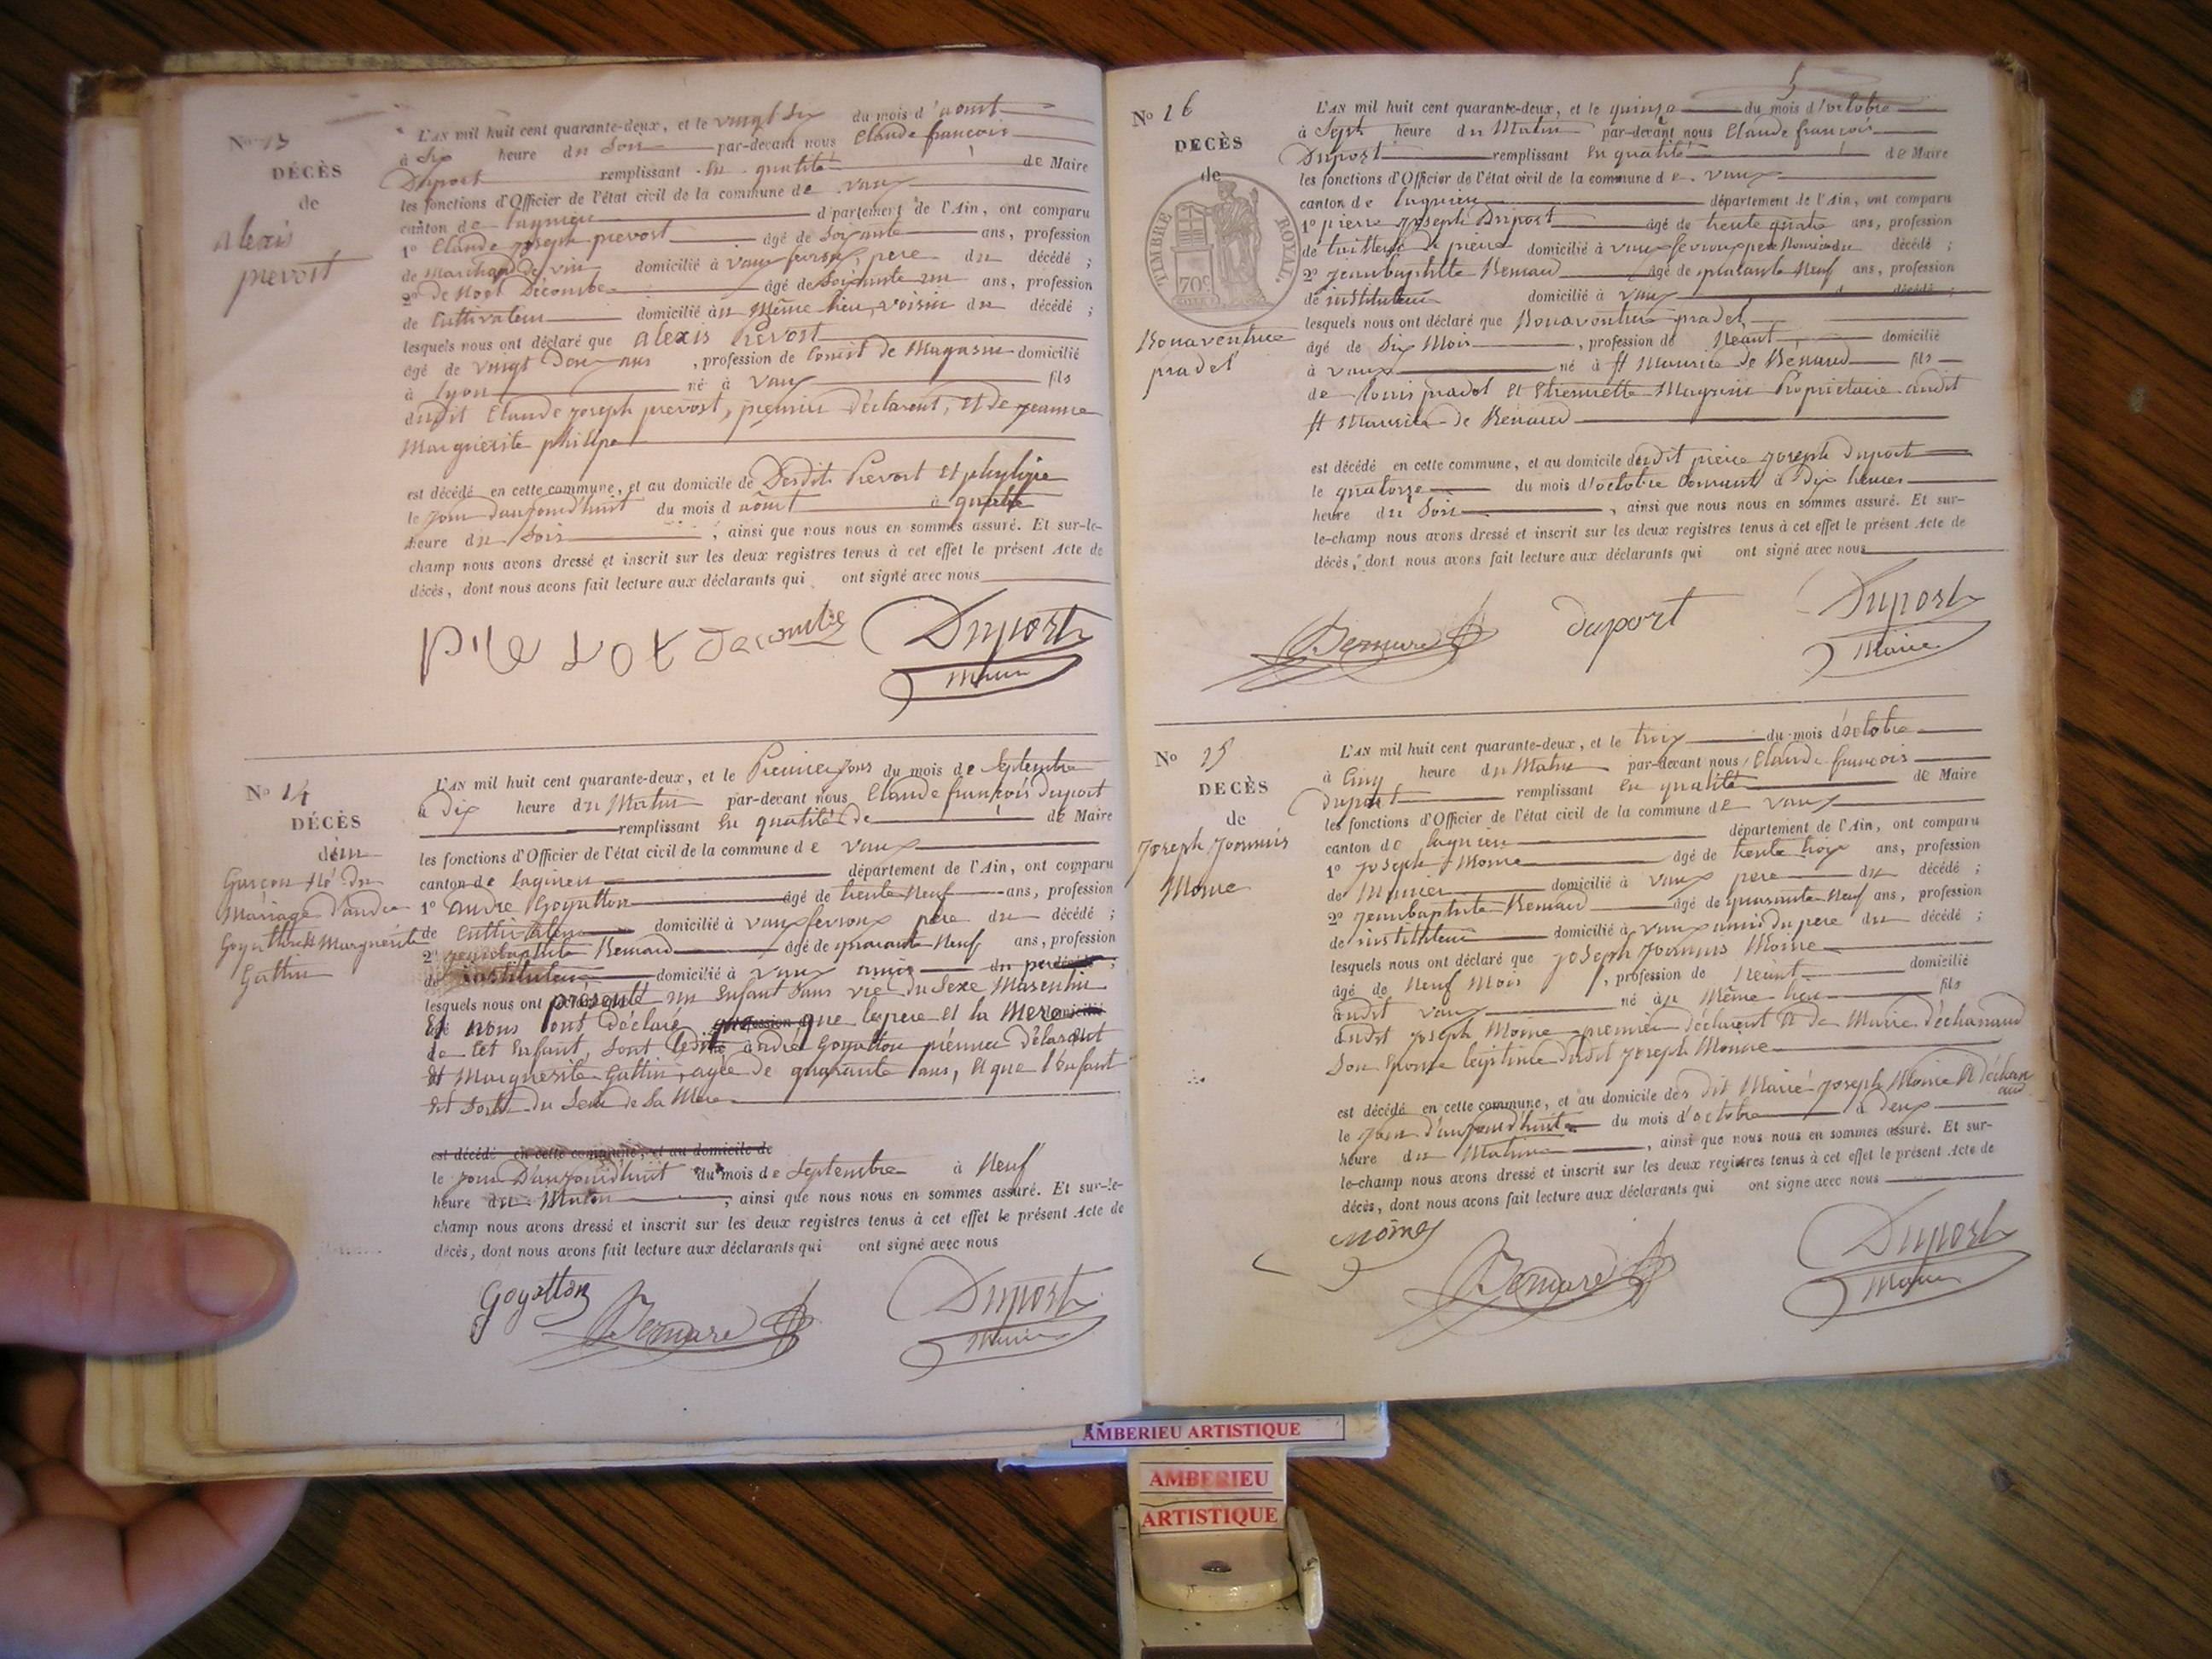 No 13
DÉCÈS
de
alexis
prevost
L'AN mil huit cent quarante-deux, et le vingt six du mois d'aoust
à six heure du Soir par-devant nous Claude françois
Duport remplissant en qualité de Maire
les fonctions d'Officier de l'état civil de la commune de vaux
canton de lagnieu département de l'Ain, ont comparu
1° Claude joseph prevost âgé de Soixante ans, profession
de Marchand de vin domicilié à vaux fevroux, pere du décédé ;
2° de Noel Décombe âgé de Soixante un ans, profession
de Cultivateur domicilié au Même lieu, voisin du décédé ;
lesquels nous ont déclaré que alexis Prevost
âgé de vingt Deux ans , profession de Comit de Magasin domicilié
à lyon né à vaux fils
dudit Claude joseph prevost, premier déclarent, et de jeanne
Marguerite philipe
est décédé en cette commune, et au domicile de Desdits Prevost et phylipe
le jour d'aujourd'huit du mois d'aôust à quatre
heure du Soir , ainsi que nous nous en sommes assuré. Et sur-le-
champ nous avons dressé et inscrit sur les deux registres tenus à cet effet le présent Acte de
décès, dont nous avons fait lecture aux déclarants qui ont signé avec nous
Decombe Duport
Maire
No 14
DÉCÈS
d'un
Garçon Né du
Mariage d'andre
Goyatton et Marguerite
Gattin
L'AN mil huit cent quarante-deux, et le Premier jour du mois de Septembre
à Dix heure du Matin par-devant nous Claude françois Duport
remplissant en qualité de de Maire
les fonctions d'Officier de l'état civil de la commune de vaux
canton de lagnieu département de l'Ain, ont comparu
1° andre Goyatton âgé de trente Neuf ans, profession
de Cultivateur domicilié à vaux fevroux pere du décédé ;
2° jeanbaptiste Bernard âgé de quarante Neuf ans, profession
de instituteur domicilié à vaux amis du décédé ;
lesquels nous ont présenté un Enfant Sans vie du Sexe Masculin
Et nous ont Déclaré que le pere et la Mere
de Cet Enfant, Sont ledit andré Goyatton prémier Déclarent
et Marguerite Gattin, agée de quarante ans, et que l'enfant
est Sortit du Sein de Sa Mere
est décédé en cette commune, et au domicile de
le jour D'aujourd'huit du mois de Septembre à Neuf
heure du Matin , ainsi que nous nous en sommes assuré. Et sur-le-
champ nous avons dressé et inscrit sur les deux registres tenus à cet effet le présent Acte de
décès, dont nous avons fait lecture aux déclarants qui ont signé avec nous
Goyatton Bernard Duport
Maire
5
No 16
DÉCÈS
de
TIMBRE ROYAL
70c
Bonaventure
pradel
L'AN mil huit cent quarante-deux, et le quinze du mois d'octobre
à Sept heure du Matin par-devant nous Claude françois
Duport remplissant en qualité de Maire
les fonctions d'Officier de l'état civil de la commune de vaux
canton de lagnieu département de l'Ain, ont comparu
1° pierre joseph Duport âgé de trente quatre ans, profession
de tailleur de pierre domicilié à vaux fevroux pere Nouricier du décédé ;
2° jeanbaptiste Bernard âgé de quarante Neuf ans, profession
de instituteur domicilié à vaux décédé ;
lesquels nous ont déclaré que Bonaventure pradel
âgé de Six Mois , profession de Neant domicilié
à vaux né à St Maurice de Benaud fils
de louis pradel et Etiennette Magnin Propriétaire audit
St Maurice de Benaud
est décédé en cette commune, et au domicile dudit pierre joseph duport
le quatorze du mois d'octobre Courant à Dix heures
heure du Soir , ainsi que nous nous en sommes assuré. Et sur-
le-champ nous avons dressé et inscrit sur les deux registres tenus à cet effet le présent Acte de
décès, dont nous avons fait lecture aux déclarants qui ont signé avec nous
Bernard duport Duport
Maire
No 15
DÉCÈS
de
joseph joannis
Moine
L'AN mil huit cent quarante-deux, et le troix du mois d'octobre
à Cinq heure du Matin par-devant nous Claude françois
duport remplissant en qualité de Maire
les fonctions d'Officier de l'état civil de la commune de vaux
canton de lagnieu département de l'Ain, ont comparu
1° joseph Moine âgé de trente troix ans, profession
de domicilié à vaux pere du décédé ;
2° jeanbaptiste Bernard âgé de quarante Neuf ans, profession
de instituteur domicilié à vaux amis du pere du décédé ;
lesquels nous ont déclaré que joseph joannis Moine
âgé de Neuf Mois , profession de Neant domicilié
audit vaux né au Même lieu fils
dudit joseph Moine premier déclarent et de Marie déchanaud
Son Epouse legitime dudit joseph Moine
est décédé en cette commune, et au domicile des dit Marié joseph Moine et déchan
aud
le jour d'aujourd'huit du mois d'octobre à deux
heure du Matin , ainsi que nous nous en sommes assuré. Et sur-
le-champ nous avons dressé et inscrit sur les deux registres tenus à cet effet le présent Acte de
décès, dont nous avons fait lecture aux déclarants qui ont signé avec nous
Bernard Duport
Maire
AMBERIEU ARTISTIQUE
AMBERIEU
ARTISTIQUE